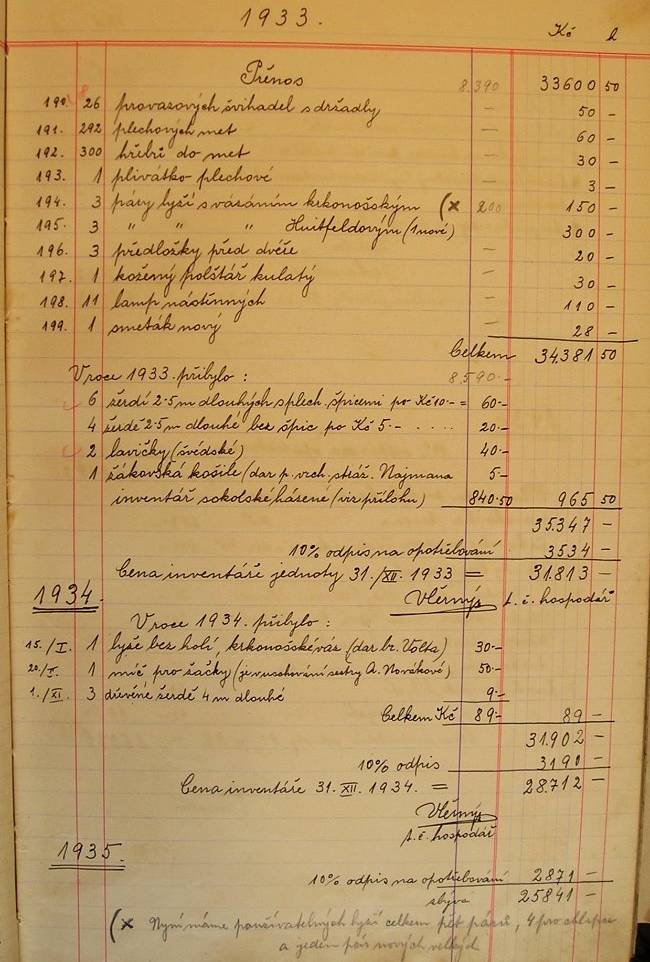 1933.
Kč h
Přenos 8.390 33600 50
190 26 provazových švihadel s držadly — 50 —
191. 292 plechových met — 60 —
192. 300 hřebů do met — 30 —
193. 1 plivátko plechové — 3 —
194. 3 páry lyží s vázáním krkonošským (× 200 150 —
195. 3 " " " Huitfeldovým (1 nové) 300 —
196. 3 předložky před dvéře — 20 —
197. 1 kožený polštář kulatý — 30 —
198. 11 lamp nástěnných — 110 —
199. 1 smeták nový — 28 —
Celkem 34.381 50
V roce 1933. přibylo : 8.590.-
6 šerdí 2·5 m dlouhých s plech. špicemi po Kč 10·- = 60·-
4 šerdě 2·5 m dlouhé bez špic po Kč 5·- . . . . 20·-
2 lavičky (švédské) 40·-
1 žákovská košile (dar p. vrch. stráž. Najmana 5·-
inventář sokolské házené (viz přílohu) 840·50 965 50
35.347 —
10% odpis na opotřebování 3534 —
Cena inventáře jednoty 31./XII. 1933 = 31.813 —
1934. Věrný t. č. hospodář
V roce 1934. přibylo :
15./I. 1 lyže bez holí, krkonošské váz (dar br. Volta) 30·-
20./V. 1 míč pro žačky (je v uschování sestry A. Novákové) 50·-
1./XI. 3 dřevěné šerdě 4 m dlouhé 9·-
Celkem Kč 89·- 89 —
31.902 —
10% odpis 3190 —
Cena inventáře 31. XII. 1934. = 28.712 —
Věrný
t. č. hospodář
1935.
10% odpis na opotřebování 2871 —
zbývá 25841 —
(× Nyní máme použivatelných lyží celkem pět párů, 4 pro chlapce
a jeden pár nových velkých